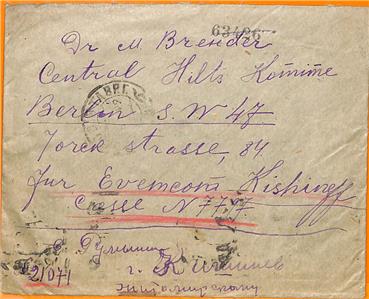 63486
Dr M. Brender
Central Hilts Komime
Berlin S.W 47
Yorck strasse, 84.
fur Evemcom Kishineff
Casse N 777
Румыния
г. Кишинев
21071